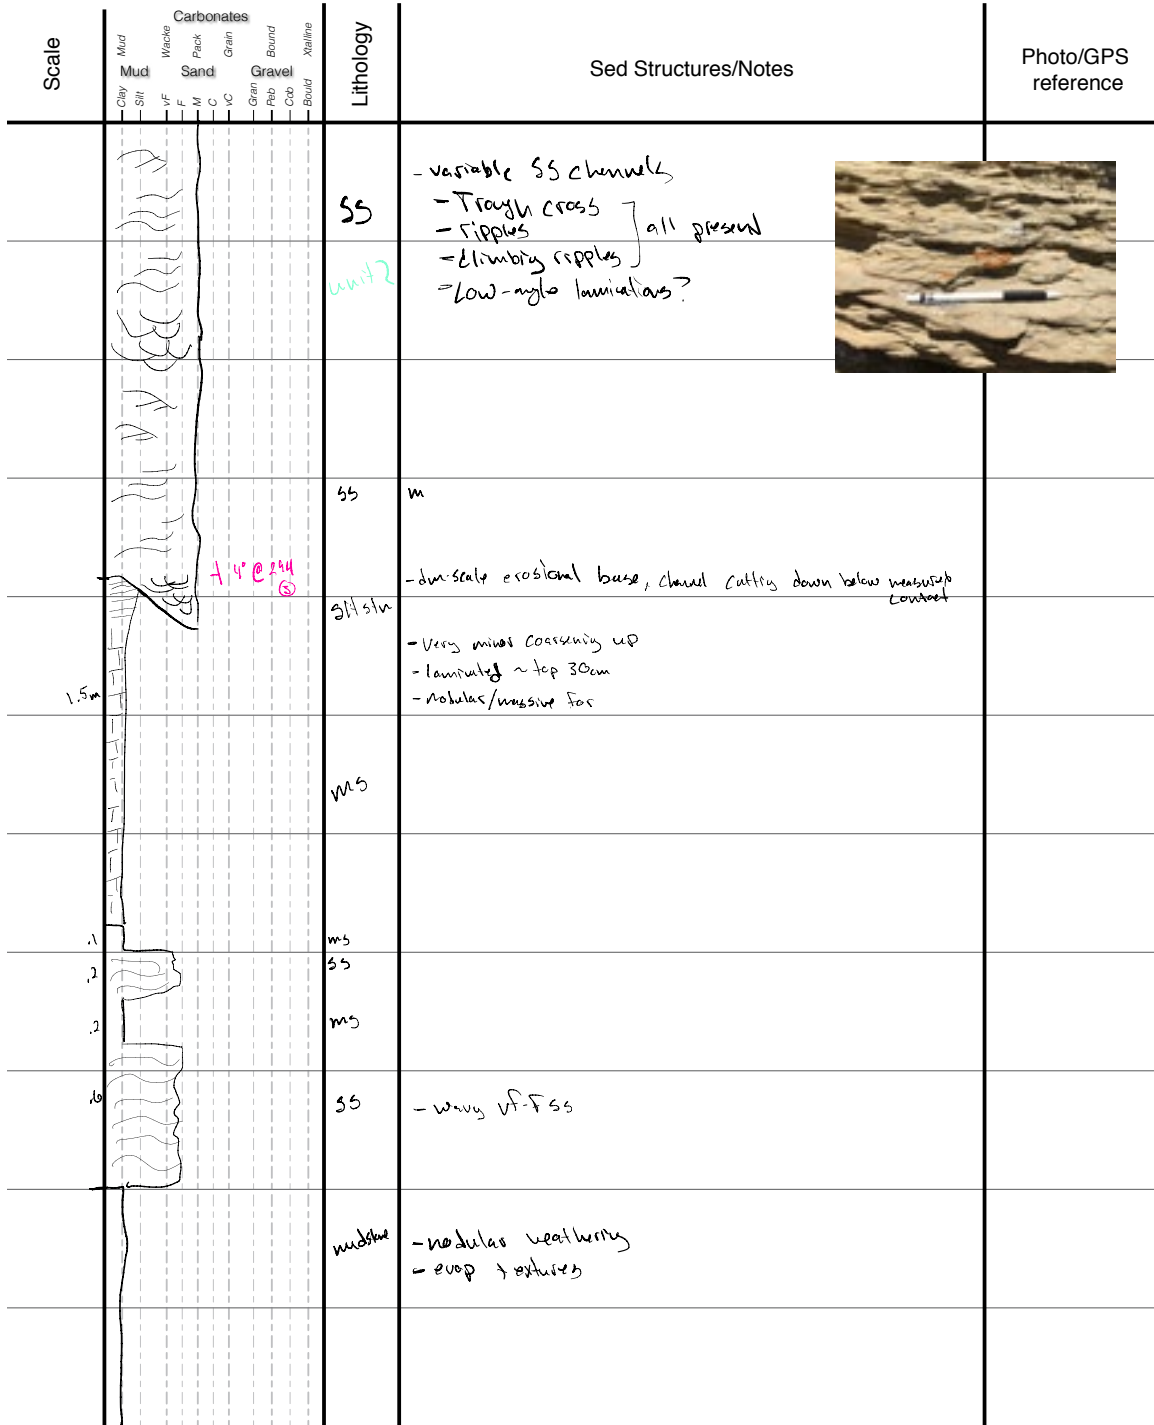 Scale
Carbonates
Mud Wacke Pack Grain Bound Xtalline
Mud Sand Gravel
Clay Silt vF F M C vC Gran Peb Cob Bould
Lithology
Sed Structures/Notes
Photo/GPS
reference
SS
unit 2
- variable SS channels
- Trough cross
- ripples
- climbing ripples
all present
- Low-angle laminations?
ss
m
4° @ 294
- dm-scale erosional base, channel cutting down below measured
contact
sltstn
- Very minor coarsening up
- laminated ~ top 30cm
- nodular/massive for
1.5m
ms
.1
ms
.2
ss
.2
ms
.6
ss
- wavy vf-F ss
mudstone
- nodular weathering
- evap textures